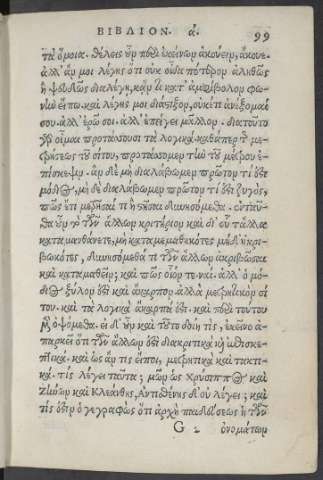 ΒΙΒΛΙΟΝ. α. 99
τὰ ὅμοια. θέλεις οὖν περὶ ἐκείνων ἀκούειν, ἄκουε.
ἀλλ' ἄν μοι λέγῃς ὅτι οὐκ οἶδα πότερον ἀληθῶς
ἢ ψευδῶς διαλέγῃ, κἄν τι κατ' ἀμφίβολον φω-
νὴν εἴπω καὶ λέγῃς μοι διάστιξον, οὐκέτι ἀνέξομαί
σου. ἀλλ' ἐρῶ σοι. ἀλλ' ἐπείγει μᾶλλον. διατοῦτο
γὸ οἶμαι προτάσσουσι τὰ λογικὰ. καθάπερ τῆς με-
ζήσεως τοῦ σίτου, προτάσσομεν τὴν τοῦ μέτρου ἐ-
πίσκεψιν. ἂν δὲ μὴ διαλάβωμεν πρῶτον τί ἐστι
μόδιος, μὴ δὲ διαλάβωμεν πρῶτον τί ἐστι ζυγὸς,
πῶς ἔτι μετρῆσαί τι ἢ στῆσαι δυνησόμεθα. ἐνταῦ-
θα οὖν τὸ τῶν ἄλλων κριτήριον καὶ δι' οὗ τἄλλα
καταμανθάνετε, μὴ καταμεμαθηκότες μηδ' ἠκρι-
βωκότες, δυνησόμεθά τι τῶν ἄλλων ἀκριβῶσαι
καὶ καταμαθεῖν; καὶ πῶς οἷόν τε· ναί. ἀλλ' ὁ μό-
διος ξύλον ἐστὶ καὶ ἄκαρπον ἀλλὰ μετρητικὸν σί
του. καὶ τὰ λογικὰ ἄκαρπά ἐστι. καὶ περὶ τούτου
μὲν ὀψόμεθα. εἰ δ' οὖν καὶ τοῦτο δοίη τὶς, ἐκεῖνο ἀ-
παρκεῖ ὅτι τῶν ἄλλων ἐστὶ διακριτικὰ καὶ ἐπισκε-
πτικά. καὶ ὡς ἄν τις εἴποι, μετρητικὰ καὶ στατι-
κά. τίς λέγει ταῦτα; μόνος Χρύσιππος καὶ
Ζήνων καὶ Κλεάνθης, Ἀντισθένης δ' οὐ λέγει; καὶ
τίς ἐστιν ὁ γεγραφὼς ὅτι ἀρχὴ παιδεύσεως ἡ τῶν
G 2 ὀνομάτων